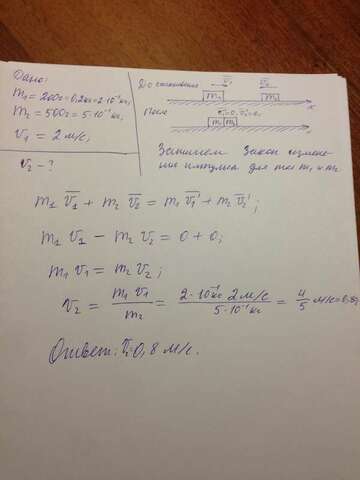 Дано:
m₁ = 200г = 0,2кг = 2·10⁻¹кг;
m₂ = 500г = 5·10⁻¹кг;
v₁ = 2 м/с;
v₂ - ?
До столкновения
v̅₁
v̅₂
m₁
m₂
x
После
v̅₁'=0; v̅₂'=0;
m₁ m₂
x
Запишем закон измене-
ния импульса для тел m₁ и m₂
m₁ v̅₁ + m₂ v̅₂ = m₁ v̅₁' + m₂ v̅₂';
m₁ v₁ - m₂ v₂ = 0 + 0;
m₁ v₁ = m₂ v₂;
v₂ = m₁ v₁ / m₂ = 2·10⁻¹кг 2м/с / 5·10⁻¹кг = 4/5 м/с = 0,8
Ответ: v₂ = 0,8 м/с.